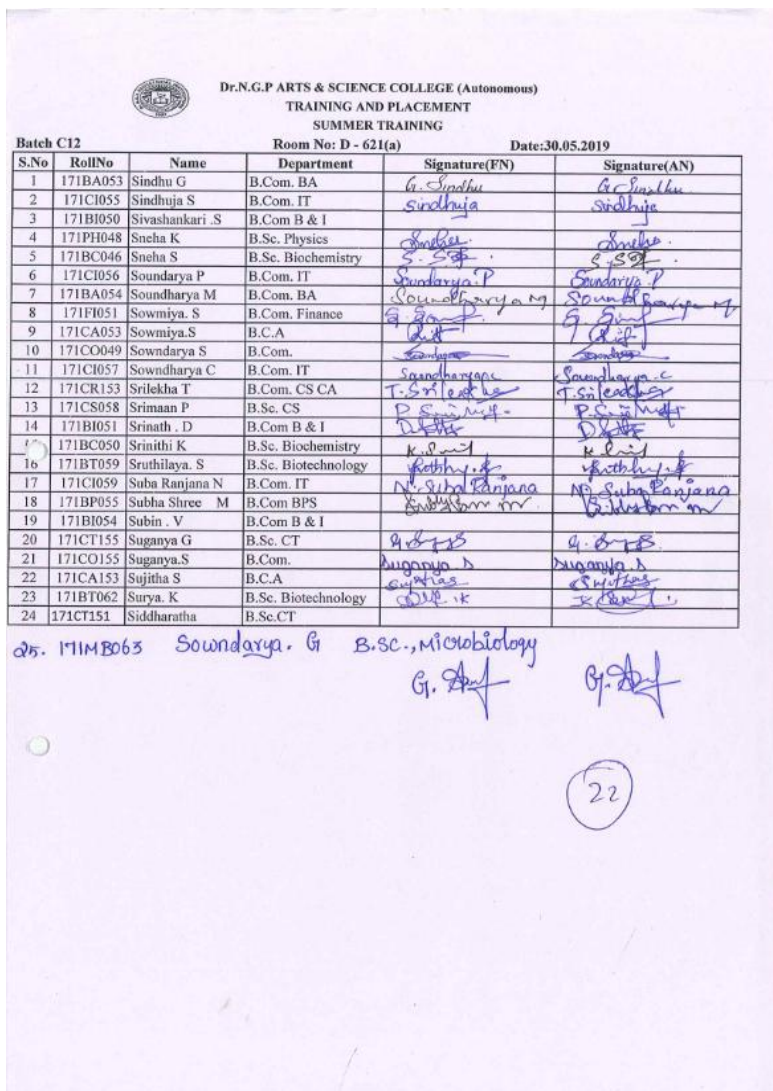 Dr.N.G.P ARTS & SCIENCE COLLEGE (Autonomous)
TRAINING AND PLACEMENT
SUMMER TRAINING
Batch C12 Room No: D - 621(a) Date:30.05.2019
S.No RollNo Name Department Signature(FN) Signature(AN)
1 171BA053 Sindhu G B.Com. BA G. Sindhu G. Sindhu
2 171CI055 Sindhuja S B.Com. IT Sindhuja Sindhuja
3 171BI050 Sivashankari .S B.Com B & I
4 171PH048 Sneha K B.Sc. Physics
5 171BC046 Sneha S B.Sc. Biochemistry
6 171CI056 Soundarya P B.Com. IT Soundarya.P Soundarya.P
7 171BA054 Soundharya M B.Com. BA Soundharya M Soundharya M
8 171FI051 Sowmiya. S B.Com. Finance
9 171CA053 Sowmiya.S B.C.A
10 171CO049 Sowndarya S B.Com.
11 171CI057 Sowndharya C B.Com. IT Sowndharya.c
12 171CR153 Srilekha T B.Com. CS CA T. Srileekha T. Srileekha
13 171CS058 Srimaan P B.Sc. CS
14 171BI051 Srinath . D B.Com B & I
171BC050 Srinithi K B.Sc. Biochemistry
16 171BT059 Sruthilaya. S B.Sc. Biotechnology
17 171CI059 Suba Ranjana N B.Com. IT N. Suba Ranjana N. Suba Ranjana
18 171BP055 Subha Shree M B.Com BPS
19 171BI054 Subin . V B.Com B & I
20 171CT155 Suganya G B.Sc. CT
21 171CO155 Suganya.S B.Com. Suganya.S Suganya.S
22 171CA153 Sujitha S B.C.A
23 171BT062 Surya. K B.Sc. Biotechnology
24 171CT151 Siddharatha B.Sc.CT
25. 171MB063 Sowndarya. G B.SC.,Microbiology
22